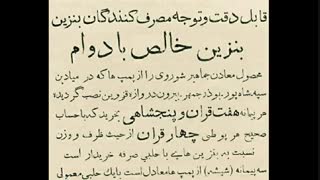 قابل دقت و توجه مصرف کنندگان بنزین
بنزین خالص با دوام
محصول معادن جماهیر شوروی را از پمپ ها که در میادین
سپه، شاه پور، بوذرجمهر، بیرون دروازه قزوین نصب گردیده
هر پیمانه هفت قران و پنجشاهی بخرید که با حساب
صحیح هر پوطی چهار قران از حیث ظرف و وزن
نسبت به بنزین هایی با حلبی صرفه خریدار است
سه پیمانه (شیشه) از پمپ ها معادل است با یک حلبی معمولی